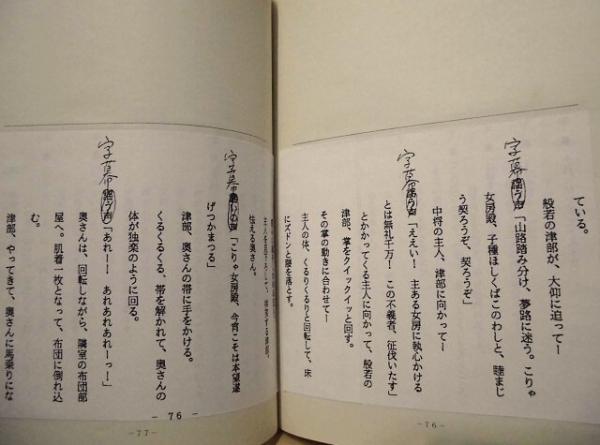 ている。
般若の津部が、大仰に迫ってー
字幕 謡う声「山路踏み分け、夢路に迷う。こりゃ
女房殿、子種ほしくばこのわしと、睦まじ
う契ろうぞ、契ろうぞ」
中将の主人、津部に向かってー
字幕 謡う声「ええい! 主ある女房に執心かける
とは無礼千万! この不義者、征伐いたす」
とかかってくる主人に向かって、般若の
津部、掌をクイックイッと回す。
その掌の動きに合わせてー
主人の体、くるりくるりと回転して、床
にズドンと腰を落とす。
-76-
主人を見下ろして、
怯える奥さん。
字幕 謡いの声「こりゃ女房殿、今宵こそは本望遂
げつかまつる」
津部、奥さんの帯に手をかける。
くるくるくる、帯を解かれて、奥さんの
体が独楽のように回る。
字幕 謡う声「あれー! あれあれあれーっー」
奥さんは、回転しながら、隣室の布団部
屋へ。肌着一枚となって、布団に倒れ込
む。
津部、やってきて、奥さんに馬乗りにな
- 76 -
-77-